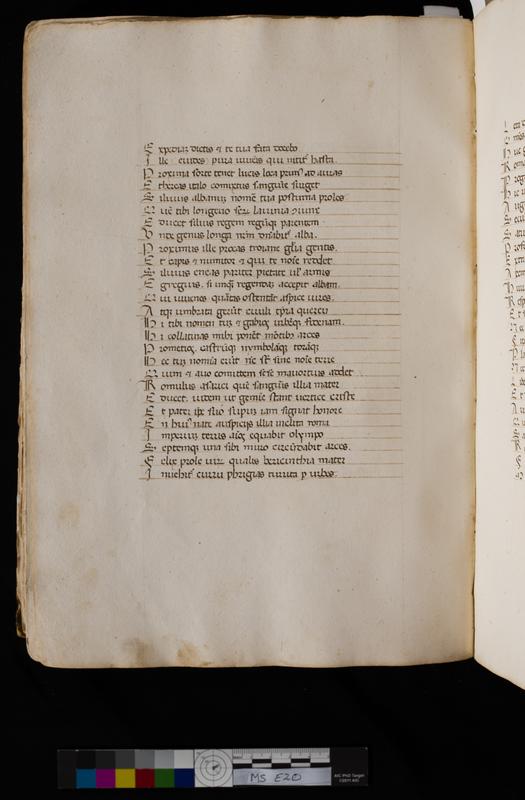 Expediaz dictis et te tua fata docebo
Ille uides pura iuuenis qui nitit hasta.
Proxima sorte tenet lucis loca primus ad auras
Ethereas italo comixtus sanguine surget
Siluius albanuz nomē tua postuma proles
Quē tibi longeuo serū lauinia ɔiunx
Educet siluis regem regūqꝫ parentem
Vnde genus longa nrm dnabit alba.
Proximus ille procas troiane glia gentis.
Et capis et numitor et qui te noīe reddet
Siluius eneas pariter pietate uel armis
Egregius. si unqꝫ regendaz accepit albam.
Qui iuuenes quātas ostentāt aspice uires.
Atqꝫ umbrata gerūt ciuili tpra quercu
Hi tibi nomen tuz et gabios urbēqꝫ fidenam.
Hi collatinas mihi ponēt mōtibus arces
Prometios castrūqꝫ nymbolāqꝫ corāqꝫ
Hec tuz nomīa erūt nc st sine noīe terre
Quin et auo comittem sese mauortius addet
Romulus asaraci quē sanguīs illia mater
Educet. uiden ut gemīe stant uertice criste
Et pater ipse suo supuz iam signat honore
En hui nate auspicijs illia incluta roma
Imperiuz terris aīos equabit olympo
Septemqꝫ una sibi muro circūdabit arces.
Felix prole uirz qualis berecinthia mater
Inuehit curru phrigias turrita p urbes.
MS E20